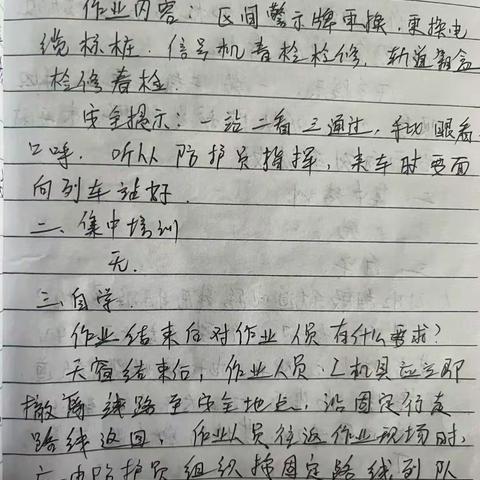 作业内容：区间警示牌更换，更换电
缆标桩．信号机看检检修，轨道箱盒
检修看检．
安全提示：一站二看三通过，手比眼看
口呼．听从防护员指挥，来车时要面
向列车站好．
二、集中培训
无．
三、自学．
作业结束后对作业人员有什么要求？
天窗结束后，作业人员、工机具应立即
撤离线路至安全地点，沿固定行走
路线返回，作业人员往返作业现场时，
应由防护员组织按固定路线列队